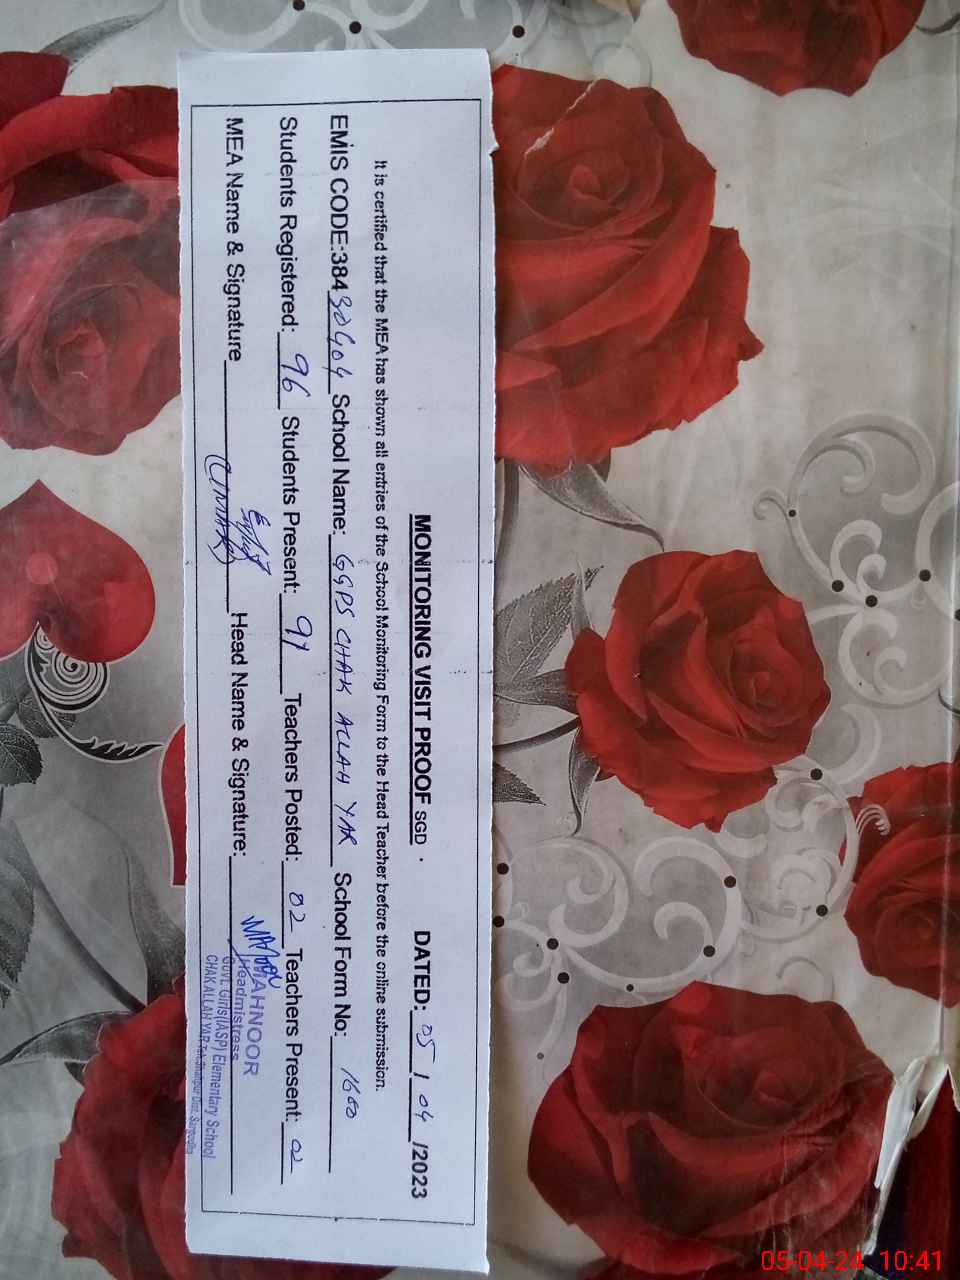 MONITORING VISIT PROOF SGD . DATED: 05 / 04 /2023
It is certified that the MEA has shown all entries of the School Monitoring Form to the Head Teacher before the online submission.
EMIS CODE:384 30404 School Name: GGPS CHAK ALLAH YAR School Form No: 1660
Students Registered: 96 Students Present: 91 Teachers Posted: 02 Teachers Present: 02
MEA Name & Signature (UMAR) Head Name & Signature:
MAHNOOR
Headmistress
Govt. Girls(IASP) Elementary School
CHAK ALLAH YAR Teh.Shahpur Dist. Sargodha
05-04-24 10:41